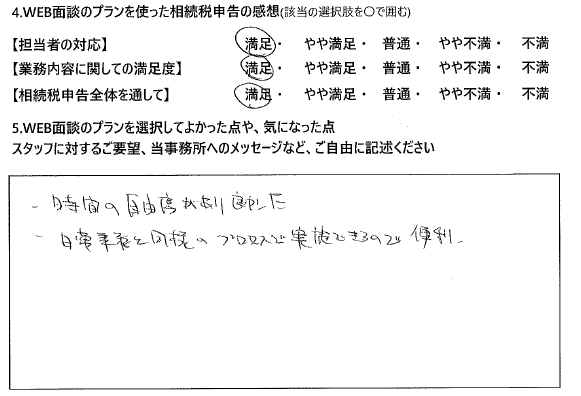 4.WEB面談のプランを使った相続税申告の感想(該当の選択肢を〇で囲む)
【担当者の対応】 満足・ やや満足・ 普通・ やや不満・ 不満
【業務内容に関しての満足度】 満足・ やや満足・ 普通・ やや不満・ 不満
【相続税申告全体を通して】 満足・ やや満足・ 普通・ やや不満・ 不満
5.WEB面談のプランを選択してよかった点や、気になった点
スタッフに対するご要望、当事務所へのメッセージなど、ご自由に記述ください
- 時間の自由度があり
- 日常業務と同様のプロセスで実施できるので便利.